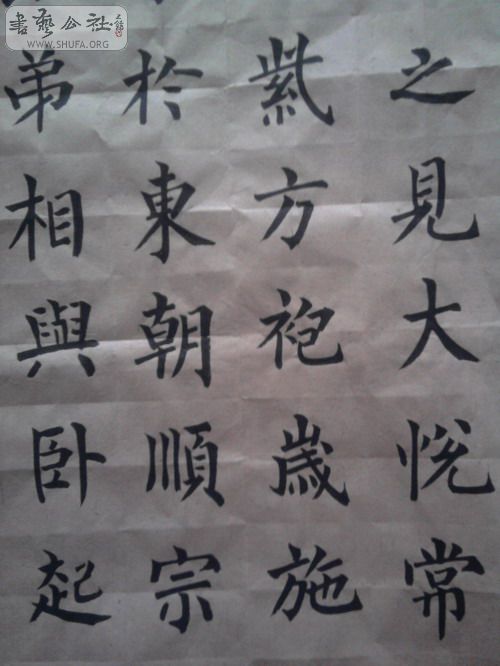 書藝公社
WWW.SHUFA.ORG
之見大悅常
紫方袍歲施
於東朝順宗
弟相與卧起